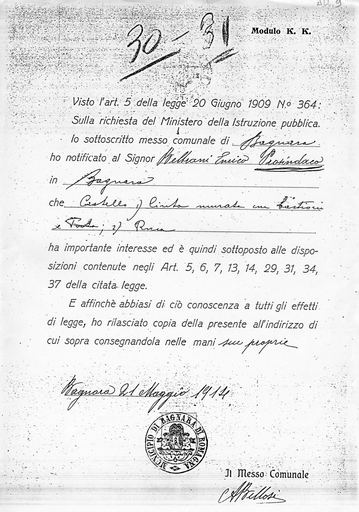 30 - 31
Modulo K. K.
Visto l'art. 5 della legge 20 Giugno 1909 N.o 364:
Sulla richiesta del Ministero della Istruzione pubblica.
Io sottoscritto messo comunale di Bagnara
ho notificato al Signor Enrico Prosindaco
in Bagnara
che Castello 1) Cinta murata con bastioni
e 2) Rocca
ha importante interesse ed è quindi sottoposto alle dispo-
sizioni contenute negli Art. 5, 6, 7, 13, 14, 29, 31, 34,
37 della citata legge.
E affinchè abbiasi di ciò conoscenza a tutti gli effetti
di legge, ho rilasciato copia della presente all'indirizzo di
cui sopra consegnandola nelle mani sue proprie
Bagnara 21 Maggio 1914
MUNICIPIO DI BAGNARA DI ROMAGNA
Il Messo Comunale